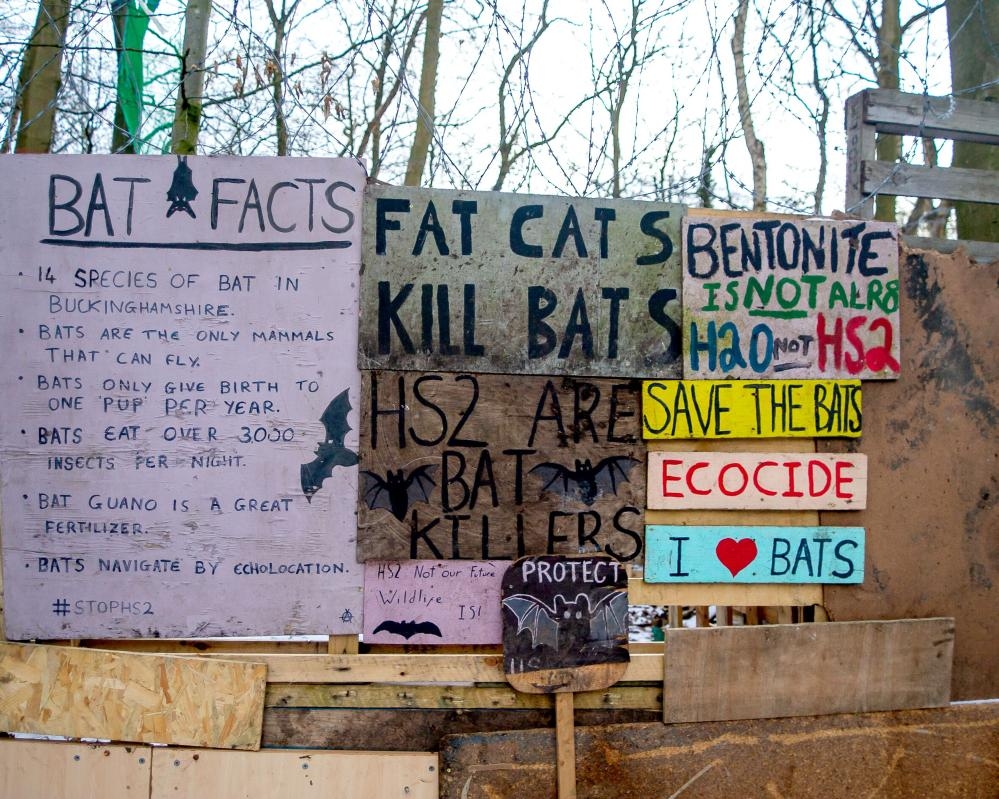 BAT FACTS
· 14 SPECIES OF BAT IN
BUCKINGHAMSHIRE.
· BATS ARE THE ONLY MAMMALS
THAT CAN FLY.
· BATS ONLY GIVE BIRTH TO
ONE 'PUP' PER YEAR.
· BATS EAT OVER 3000
INSECTS PER NIGHT.
· BAT GUANO IS A GREAT
FERTILIZER.
· BATS NAVIGATE BY ECHOLOCATION.
#STOPHS2
FAT CATS
KILL BATS
HS2 ARE
BAT
KILLERS
HS2 Not our Future
Wildlife
IS!
PROTECT
US
BENTONITE
IS NOT ALR8
H2O NOT HS2
SAVE THE BATS
ECOCIDE
I ♥ BATS